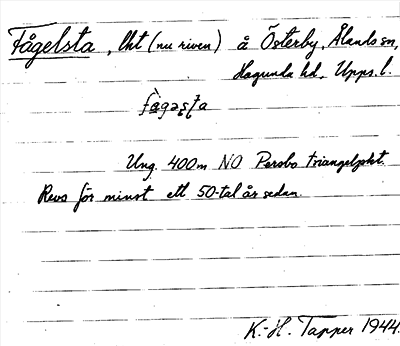 Fågelsta, lht (nu riven) å Österby, Ålands sn,
Hagunda hd, Upps. l.
fågəsta
Ung. 400m NO Persbo triangelpkt.
Revs för minst ett 50-tal år sedan.
K.-H. Tapper 1944.